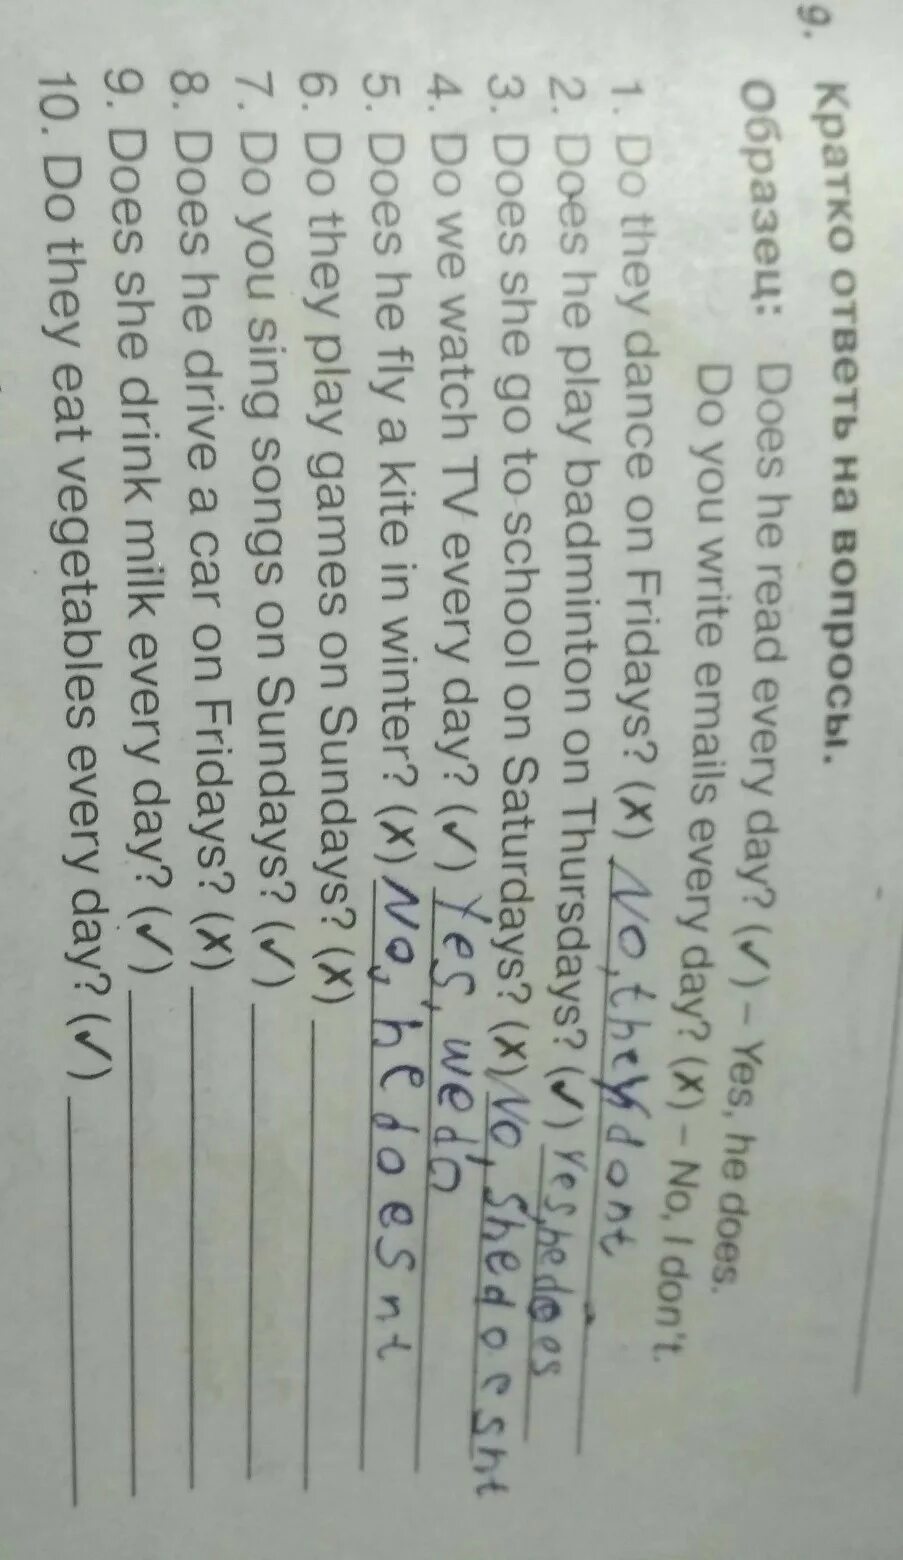 9. Кратко ответь на вопросы.
Образец: Does he read every day? (✓) – Yes, he does.
Do you write emails every day? (x) – No, I don't.
1. Do they dance on Fridays? (x) No, they dont
2. Does he play badminton on Thursdays? (✓) Yes, he does
3. Does she go to school on Saturdays? (x) No, she doesnt
4. Do we watch TV every day? (✓) Yes, we do
5. Does he fly a kite in winter? (x) No, he doesnt
6. Do they play games on Sundays? (x)
7. Do you sing songs on Sundays? (✓)
8. Does he drive a car on Fridays? (x)
9. Does she drink milk every day? (✓)
10. Do they eat vegetables every day? (✓)